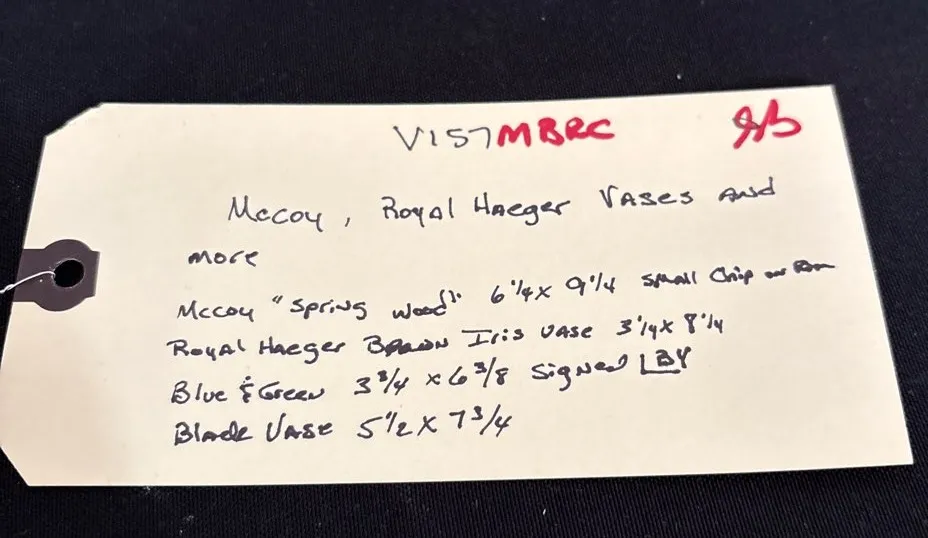 V157MBRC
McCoy, Royal Haeger Vases And
more
McCoy "Spring Wood" 6 1/4 x 9 1/4 Small Chip on Rim
Royal Haeger Brown Iris Vase 3 1/4 x 8 1/4
Blue & Green 3 3/4 x 6 3/8 Signed LBY
Black Vase 5 1/2 x 7 3/4